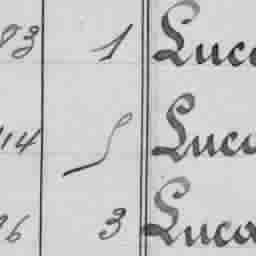 83 1 Luca
114 5 Luca
96 3 Luca